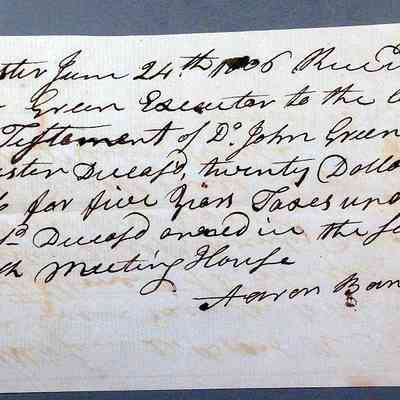 ster June 24th 1806 Rec
Green Executor to the l
Testament of Dr John Green
ster Deceasd, twenty Dolla
for five Years Taxes upo
sd Deceasd owned in the
th Meeting House
Aaron Ban